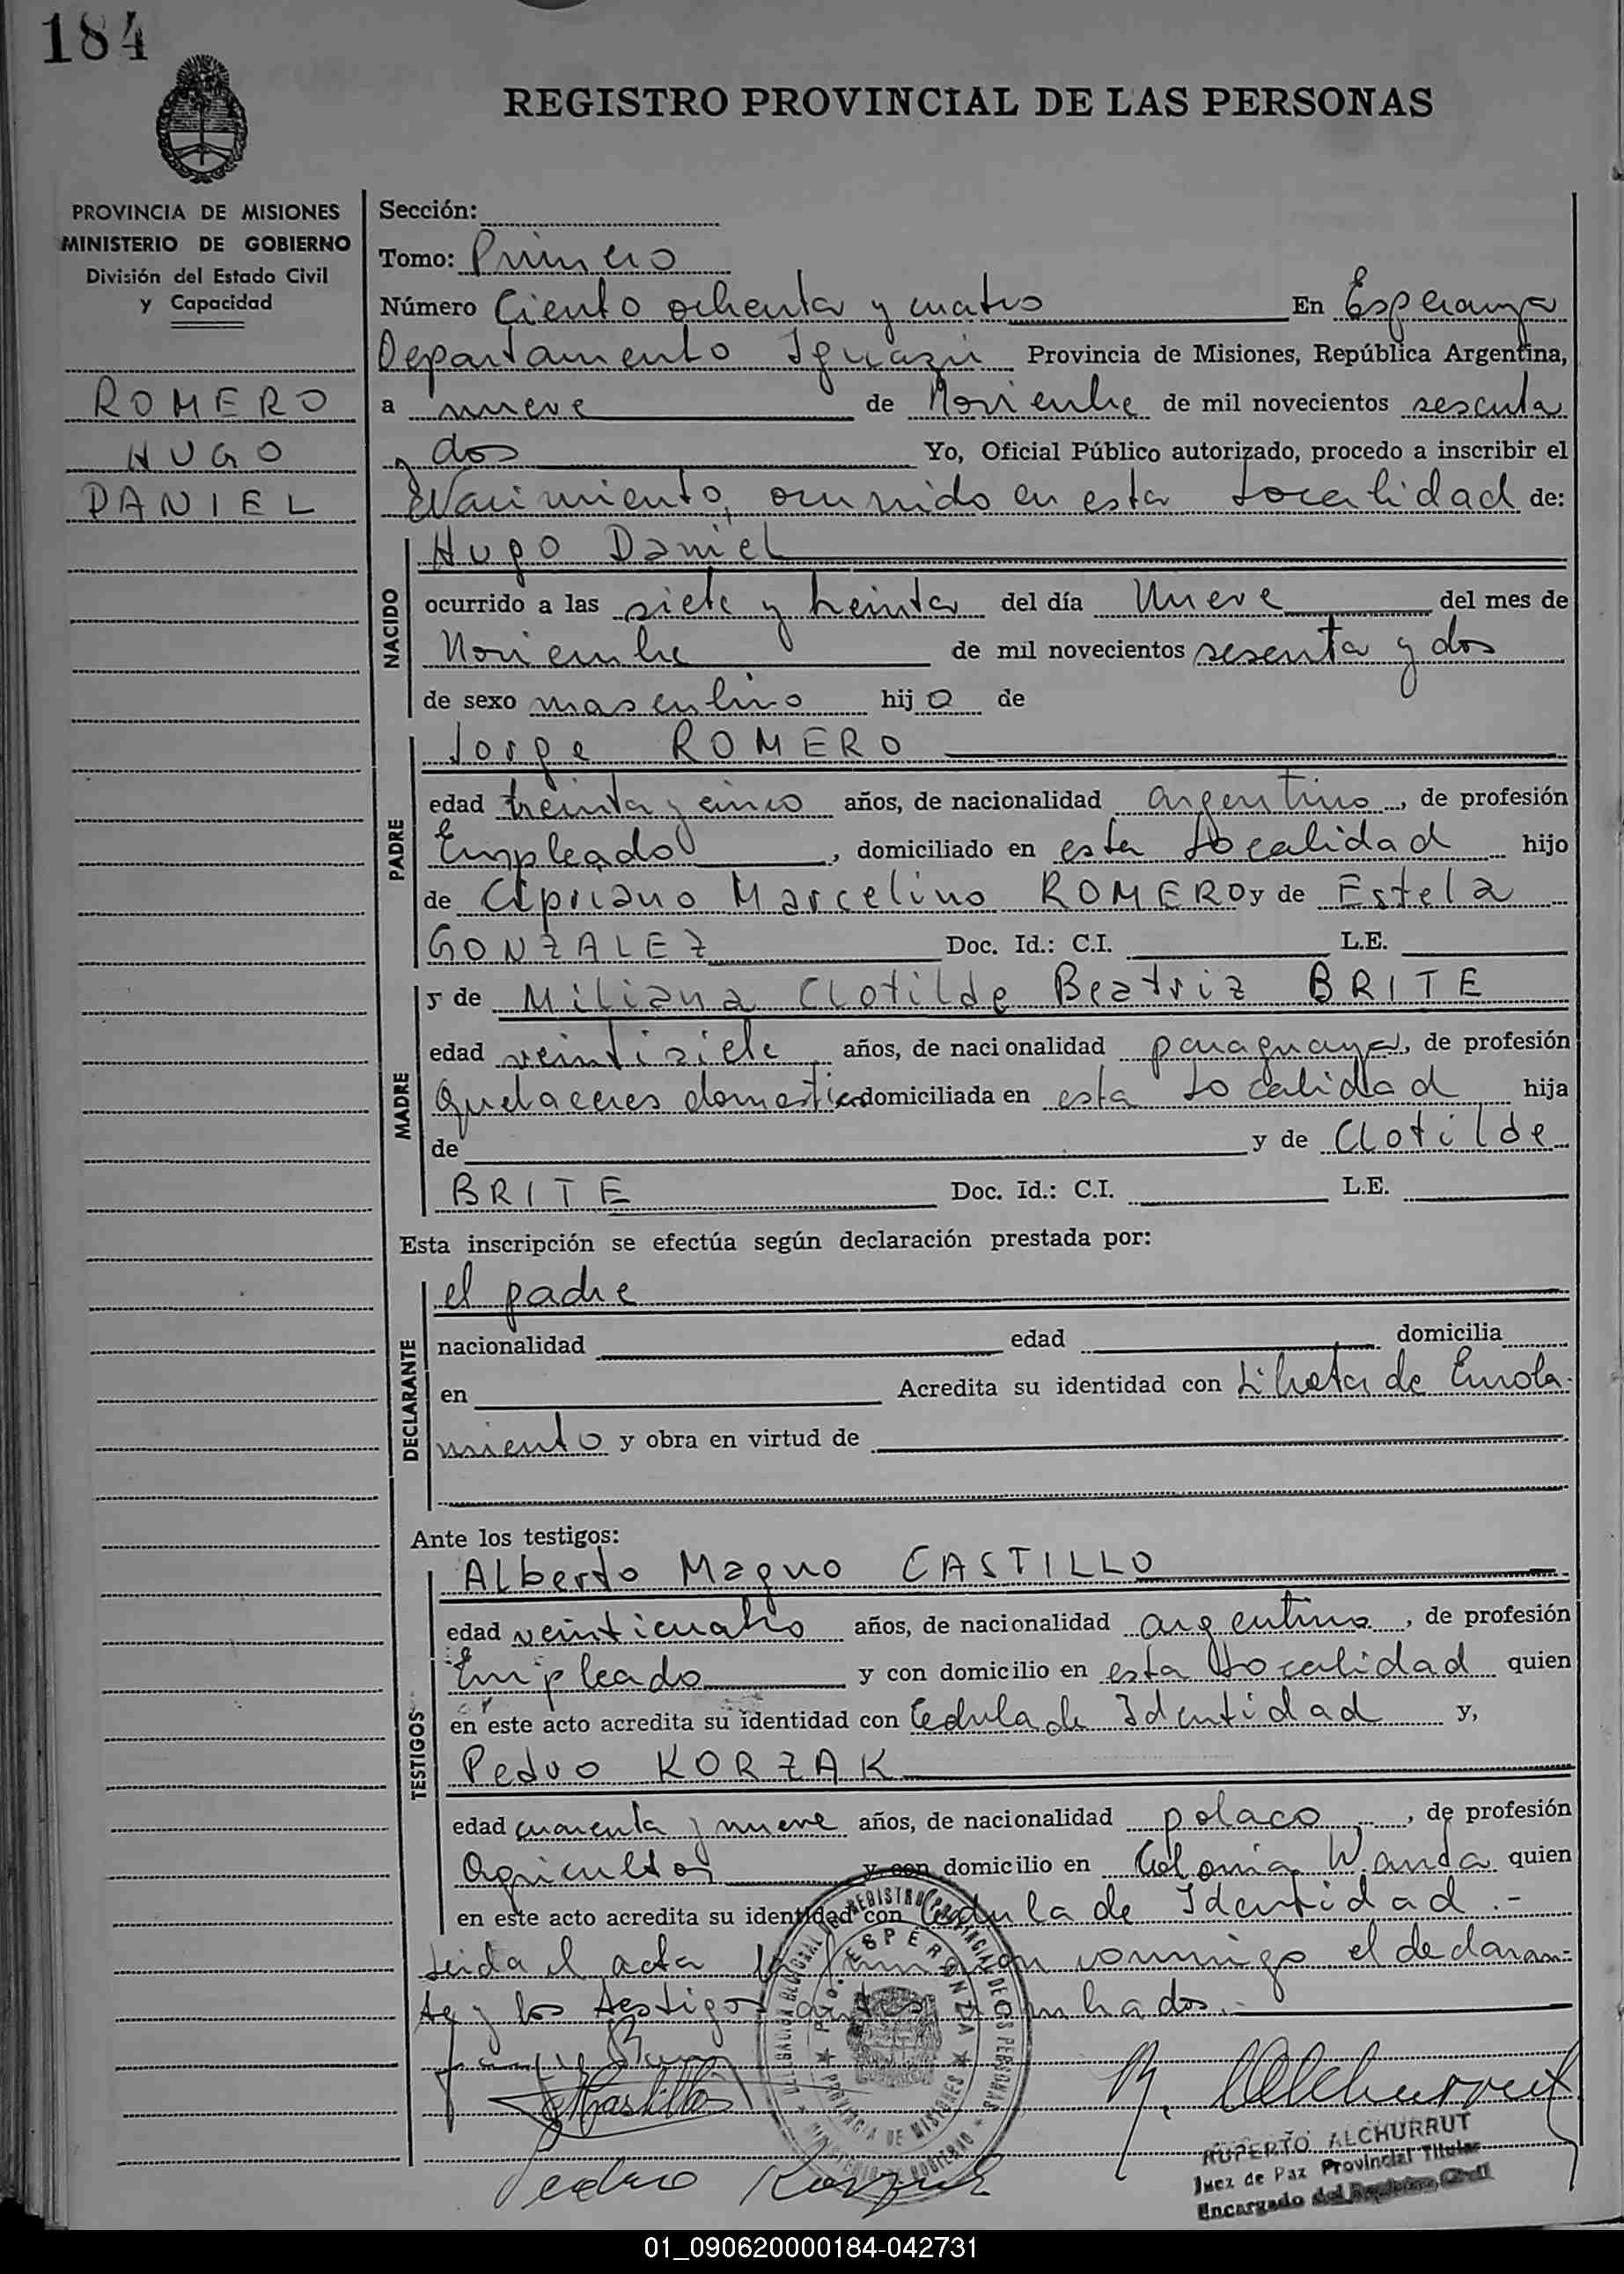 184
REGISTRO PROVINCIAL DE LAS PERSONAS
PROVINCIA DE MISIONES
MINISTERIO DE GOBIERNO
División del Estado Civil
y Capacidad
ROMERO
HUGO
DANIEL
Sección:
Tomo: Primero
Número Ciento ochenta y cuatro En Esperanza
Departamento Iguazú Provincia de Misiones, República Argentina,
a nueve de Noviembre de mil novecientos sesenta
y dos Yo, Oficial Público autorizado, procedo a inscribir el
Nacimiento, ocurrido en esta Localidad de:
NACIDO
Hugo Daniel
ocurrido a las siete y treinta del día Nueve del mes de
Noviembre de mil novecientos sesenta y dos
de sexo masculino hijo de
PADRE
Jorge ROMERO
edad treinta y cinco años, de nacionalidad argentino, de profesión
Empleado, domiciliado en esta Localidad hijo
de Cipriano Marcelino ROMERO y de Estela
GONZALEZ Doc. Id.: C.I. L.E.
MADRE
y de Miliana Clotilde Beatriz BRITE
edad veintisiete años, de nacionalidad paraguaya, de profesión
Quehaceres domesticos domiciliada en esta Localidad hija
de y de Clotilde
BRITE Doc. Id.: C.I. L.E.
Esta inscripción se efectúa según declaración prestada por:
DECLARANTE
el padre
nacionalidad edad domicilia
en Acredita su identidad con Libreta de Enrola-
miento y obra en virtud de
Ante los testigos:
TESTIGOS
Alberto Magno CASTILLO
edad veinticuatro años, de nacionalidad argentino, de profesión
Empleado y con domicilio en esta Localidad quien
en este acto acredita su identidad con Cedula de Identidad y,
Pedro KORZAK
edad cuarenta y nueve años, de nacionalidad polaco, de profesión
Agricultor y con domicilio en Colonia Wanda quien
en este acto acredita su identidad con Cedula de Identidad.-
Leida el acta la firmaron conmigo el declaran-
te y los testigos antes nombrados.-
ESPERANZA
PROVINCIA DE MISIONES
Castillo
R. Alchurrut
Pedro Korzak
RUPERTO ALCHURRUT
Juez de Paz Provincial Titular
Encargado del Registro Civil
01_090620000184-042731